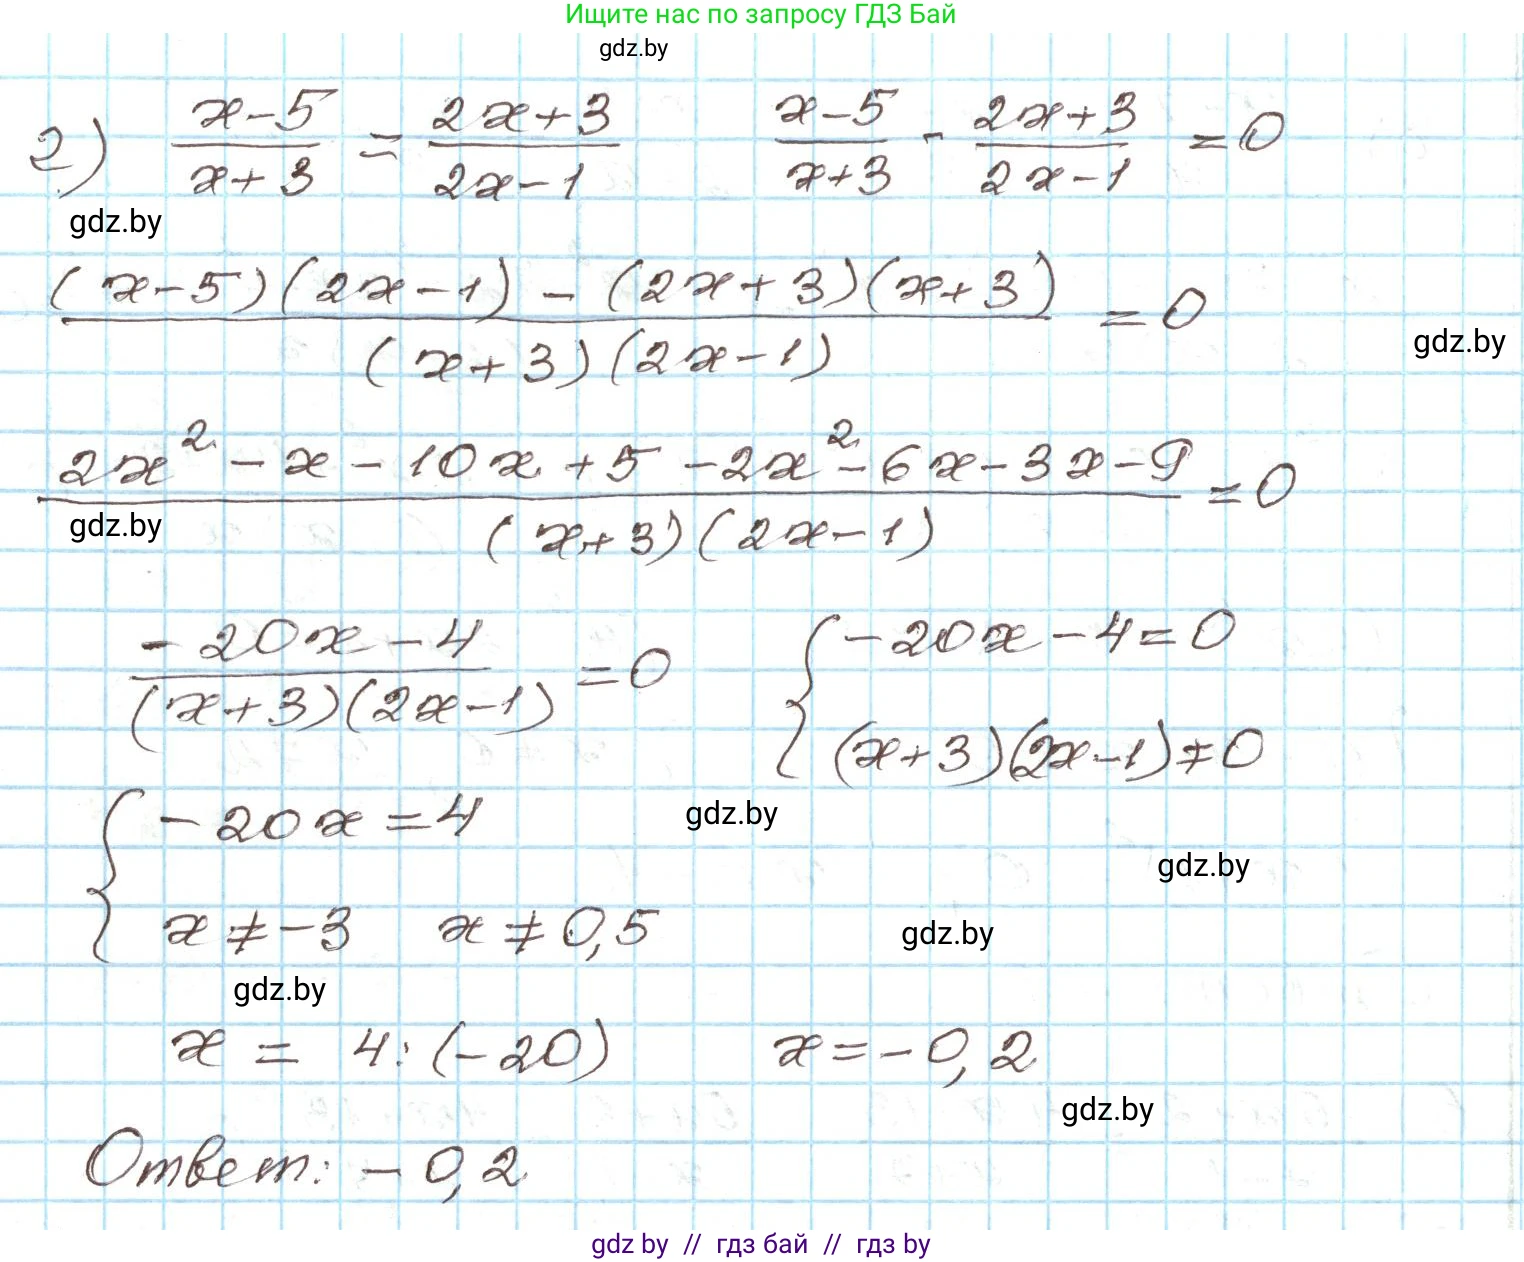 Ищите нас по запросу ГДЗ Бай
gdz.by
2) (x-5)/(x+3) = (2x+3)/(2x-1)    (x-5)/(x+3) - (2x+3)/(2x-1) = 0
gdz.by
((x-5)(2x-1) - (2x+3)(x+3))/((x+3)(2x-1)) = 0
gdz.by
(2x² - x - 10x + 5 - 2x² - 6x - 3x - 9)/((x+3)(2x-1)) = 0
gdz.by
(-20x - 4)/((x+3)(2x-1)) = 0    { -20x - 4 = 0
(x+3)(2x-1) ≠ 0
{ -20x = 4
gdz.by
gdz.by
x ≠ -3    x ≠ 0,5
gdz.by
gdz.by
x = 4 : (-20)    x = -0,2
gdz.by
Ответ: -0,2
gdz by // гдз бай // гдз by